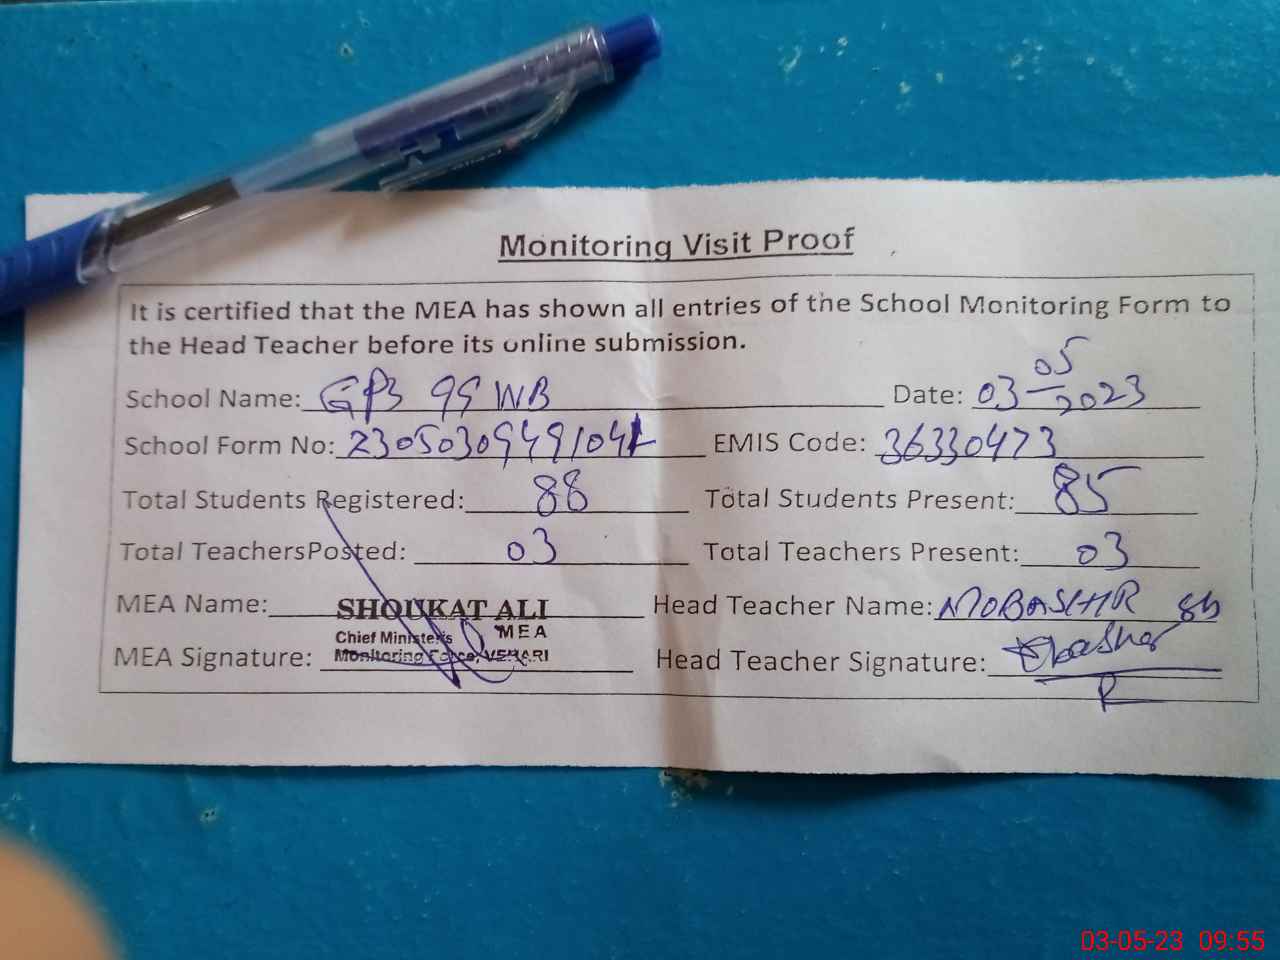 Monitoring Visit Proof
It is certified that the MEA has shown all entries of the School Monitoring Form to
the Head Teacher before its online submission.
School Name: GPS 99 WB Date: 03-05-2023
School Form No: EMIS Code: 36330473
Total Students Registered: 88 Total Students Present: 85
Total TeachersPosted: 03 Total Teachers Present: 03
MEA Name: SHOUKAT ALI Head Teacher Name: MOBASHR
Chief Minister's MEA
Monitoring Force, VEHARI
MEA Signature: Head Teacher Signature:
03-05-23 09:55